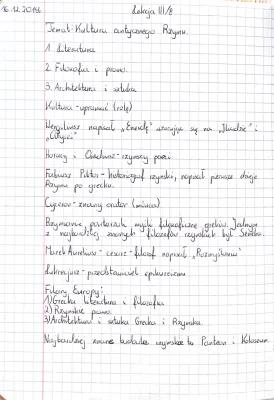 16.12.2019r. Lekcja III/8
Temat: Kultura antycznego Rzymu.
1. Literatura
2. Filozofia i prawo.
3. Architektura i sztuka
Kultura - uprawiać (rolę)
Wergiliusz napisał „Eneidę" wzorując się na „Iliadzie" i
„Odysei"
Horacy i Owidiusz - rzymscy poeci
Fabiusz Piktor - historiograf rzymski, napisał pierwsze dzieje
Rzymu po grecku.
Cyceron - znany orator (mówca)
Rzymianie powtarzali myśli filozoficzne greków. Jednym
z najbardziej znanych filozofów rzymskich był Seneka.
Marek Aureliusz - cesarz - filozof napisał „Rozmyślania"
Lukrecjusz - przedstawiciel epikureizmu
Filary Europy:
1) Grecka literatura i filozofia
2) Rzymskie prawo.
3) Architektura i sztuka Grecka i Rzymska.
Najbardziej znane budowle rzymskie to Panteon i Koloseum.